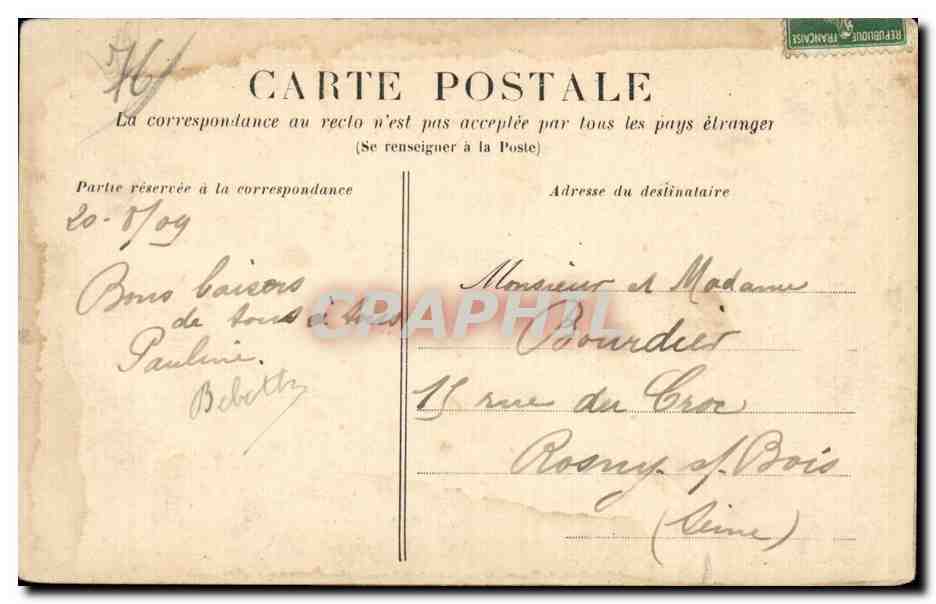 76
REPUBLIQUE FRANÇAISE
CARTE POSTALE
La correspondance au recto n'est pas acceptée par tous les pays étranger
(Se renseigner à la Poste)
Partie réservée à la correspondance
20-8/09
Bons baisers
de tous à tous
Pauline.
Adresse du destinataire
Monsieur et Madame
Bourdier
15 rue du Croc
Rosny s/ Bois
(Seine)
CPAPHIL